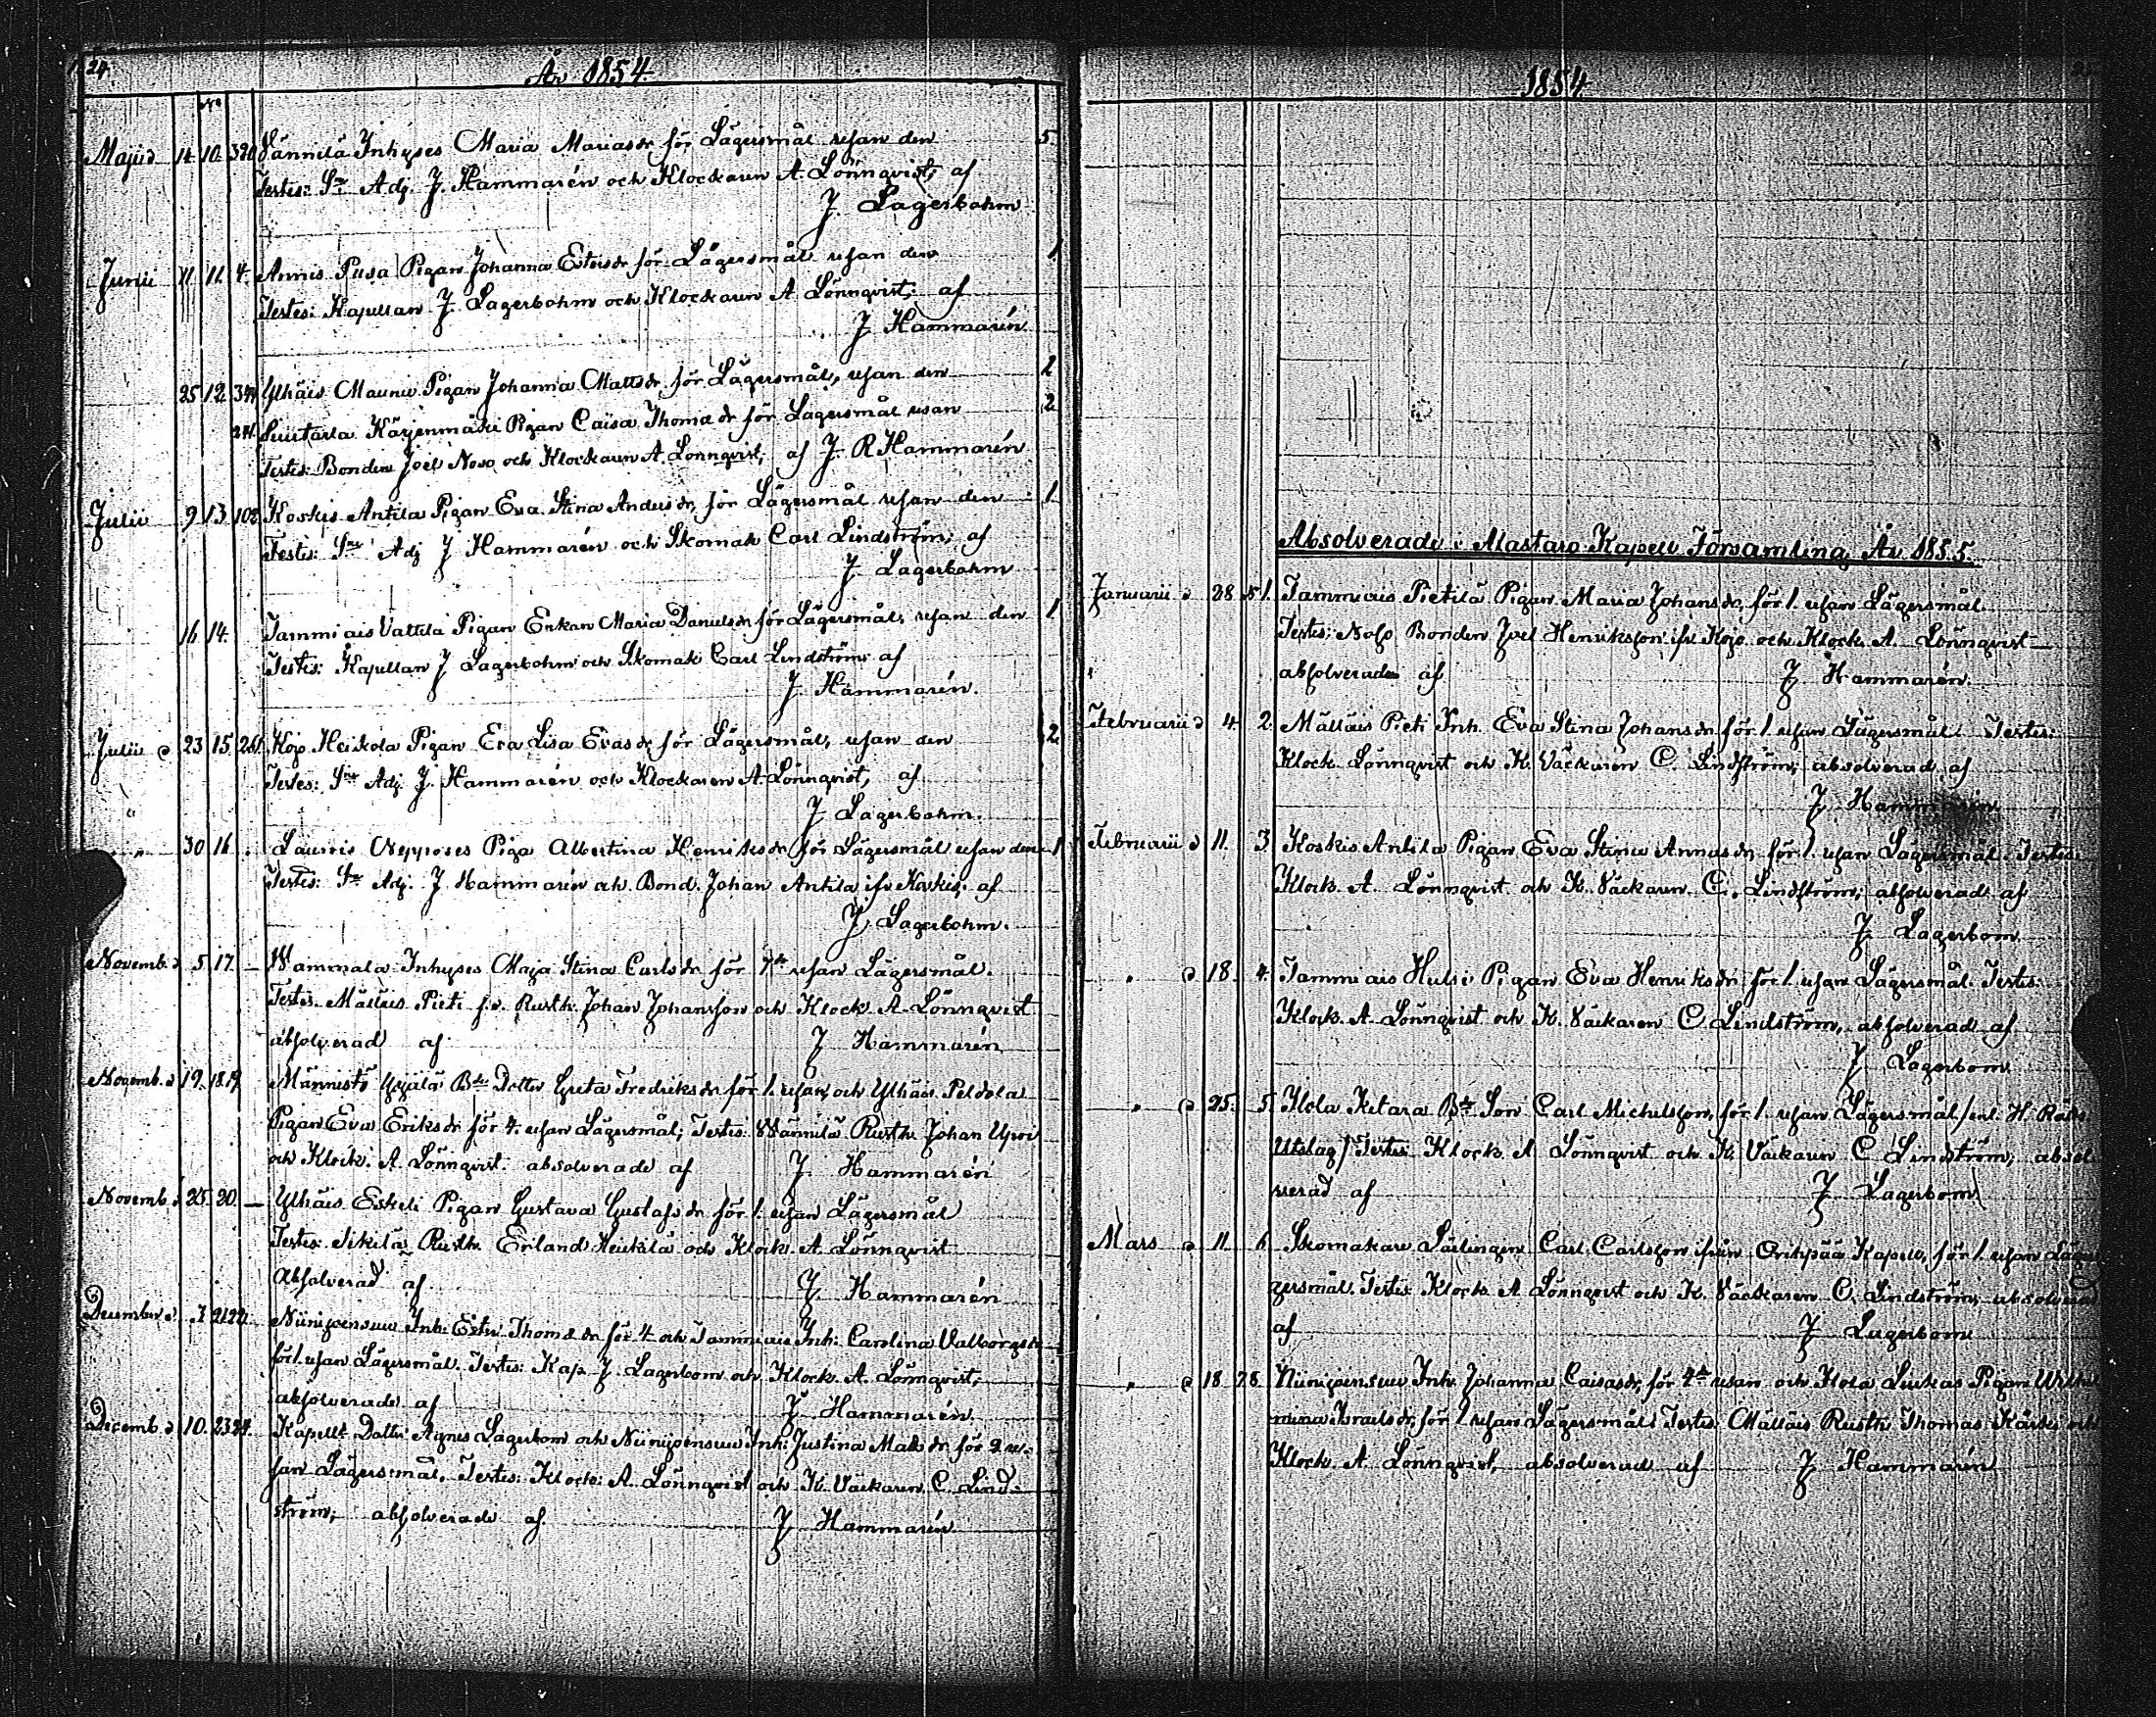 24
År 1854
No
Maji d 14. 10. 320 Vännilä Inhyses Maria Mariasdr för Lägersmål resan den 5.
Testes: Sne Adj. J. Hammarén och Klockaren A. Lönnqvist, af
J. Lagerbohm
Junii 11 11. 4. Annis Pusa Pigan Johanna Estersdr för Lägersmål resan den 1
Testes: Kapellan J. Lagerbohm och Klockaren A. Lönnqvist; af
J Hammarén
25 12 Ylhäis Maunu Pigan Johanna Mattsdr för Lägersmål, resan den 2
Kärjenmäki Pigan Caisa Thomædr för Lägersmål resan 2
Testes: Bonden Joel Noso och Klockaren A. Lönnqvist, af J. R Hammarén
Julii 9 13. 102 Koskis Antila Pigan Eva Stina Andersdr för Lägersmål resan den 1
Testes: Sne Adj J Hammarén och Skomak Carl Lindström, af
J. Lagerbohm
16 14. Tammiais Vallila Pigan Enkan Maria Danielsdr för Lägersmål, resan den 1
Testes: Kapellan J Lagerbohm och Skomak Carl Lindström af
J. Hammarén.
Julii d 23 15 261 Kojo Heikola Pigan Eva Lisa Evasdr för Lägersmål, resan den 2
Testes: Sne Adj. J. Hammarén och Klockaren A. Lönnqvist, af
J Lagerbohm.
" 30 16 Lauris Nepposes Piga Albertina Henriksdr för Lägersmål resan den 1
Testes: Sne Adj. J. Hammarén och Bond. Johan Antila ifr Koskis; af
J. Lagerbohm.
Novemb. d 5 17. — Wammala Inhyses Maja Stina Carlsdr för resan Lägersmål.
Testes. Mälläis Pieti f.v. Rusth. Johan Johansson och Klock A. Lönnqvist
absolverad af J Hammarén
Novemb. d 19. 18.19. Männistö Yrjälä Bde Dotter Greta Fredriksdr för 1. resan och Ylhäis Peldola
Pigan Eva Eriksdr för 4. resan Lägersmål; Testes: Wännilä Rusth. Johan
och Klock. A. Lönnqvist. absolverade af J. Hammarén
Novemb. d 25 20. — Ylhäis Eskeli Pigan Gustava Gustafsdr för 1. resan Lägersmål
Testes: Sikilä Rusth. Erland Heikilä och Klock. A. Lönnqvist
Absolverad af J Hammarén
December d. 3 21 22. Niinijoensuu Inh: Ester Thomædr för 4 och Tammiais Inh: Carolina Valborgsdr
för 1. resan Lägersmål. Testes: Kap. J. Lagerbom och Klock. A. Lönnqvist,
absolverade af J Hammarén.
Decemb. d 10. 23 24. Kapells Dotter Agnes Lagerbom och Niinijoensuu Inh: Justina Mattsdr för 2 re-
san Lägersmål. Testes: Klock: A. Lönnqvist och K. Väckaren C. Lind-
ström; absolverade af. J Hammarén
1854
Absolverade i Mastaro Kapell Församling År 1855.
Januarii d 28 1. Tammiais Pietilä Pigan Maria Johansdr, för 1. resan Lägersmål.
Testes; Noso Bonden Joel Henriksson ifr Kojo och Klock. A. Lönnqvist
absolverade af J Hammarén.
Februarii d 4. 2. Mälläis Pieti Inh. Eva Stina Johansdr för 1. resan Lägersmål. Testes:
Klock. Lönnqvist och K. Väckaren C. Lindström; absolverad af
J Hammarén
Februarii d 11. 3 Koskis Antila Pigan Eva Stina Annasdr för 1. resan Lägersmål. Testes:
Klock. A. Lönnqvist och K. Väckaren C. Lindström; absolverad af
J Lagerbom
" d 18. 4. Tammiais Hulsi Pigan Eva Henriksdr för 1. resan Lägersmål. Testes:
Klock. A. Lönnqvist och K. Väckaren C Lindström, absolverad af
J Lagerbom
" d 25. 5 Ylola Ketara Bde Son Carl Michelsson, för 1. resan Lägersmål /enl. H. Rätts
Utslag/ Testes: Klock. A Lönnqvist och K. Väckaren C Lindström; absol
verad af J Lagerbom
Mars d 11. 6. Skomakare Lärlingen Carl Carlsson ifrån Oripää Kapell, för 1. resan Läge
gersmål. Testes: Klock. A Lönnqvist och K. Väckaren C. Lindström, absolverad
af J Lagerbom
" d 18 7.8. Niinijoensuu Inh. Johanna Caisasdr, för 4de resan och Ylola Liukas Pigan Wilhel
mina Israelsdr, för 1. resan Lägersmål. Testes. Mälläis Rusth. Thomas Kärki och
Klock. A. Lönnqvist, absolverad af J Hammarén